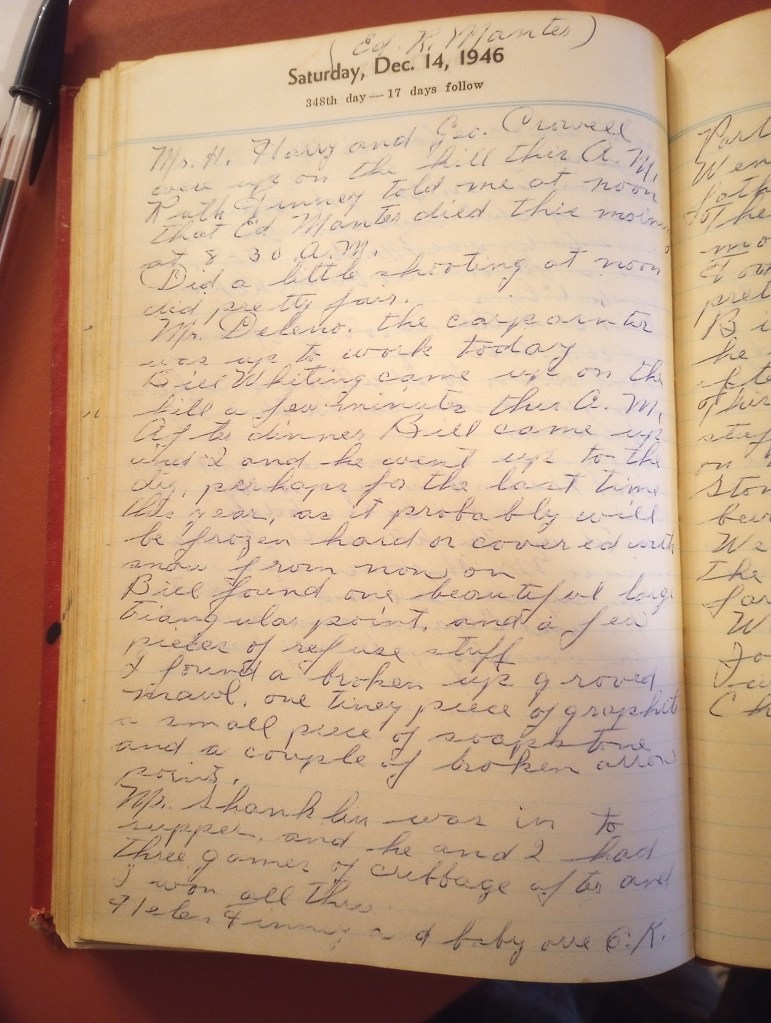 (Ed. R. Mantes)
Saturday, Dec. 14, 1946
348th day — 17 days follow
Mr. H. Harry and Geo. Crowell
over up on the hill this A. M.
Ruth Finney told me at noon
that Ed Mantes died this
at 8 - 30 A.M.
Did a little shooting at noon
did pretty fair.
Mr. Deleno. the carpainter
was up to work today
Bill Whiting came up on the
hill a few minutes this A. M.
After dinner Bill came up
and I and he went up to the
dig, perhaps for the last time
this year, as it probably will
be frozen hard or covered with
snow from now on
Bill found one beautiful large
triangular point, and a few
pieces of refuse stuff
I found a broken up groved
mawl, one tiney piece of graphit
a small piece of soapstone
and a couple of broken arrow
points.
Mr. Shanklin was in to
supper, and he and I had
three games of cribbage after and
I won all three
Helen Finney and baby are O.K.
Part
Wen
fath
of he
mo
pret
Bi
he
afte
of his
stuf
on
Ston
We
the
far
W
Jo
Ch